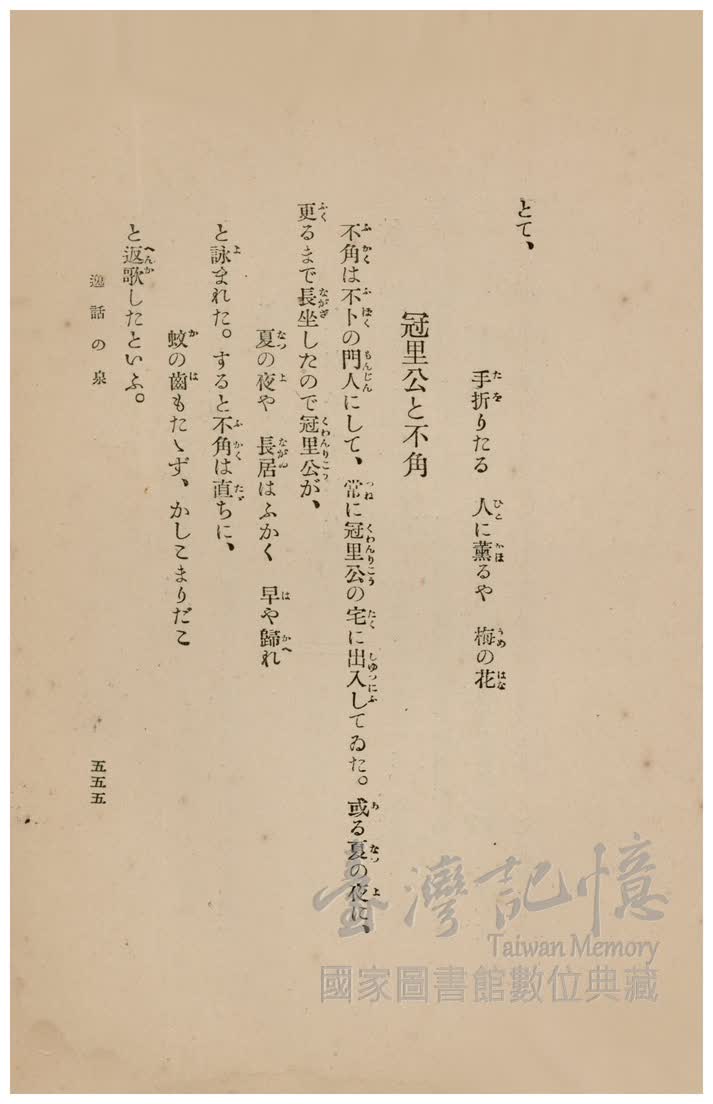 とて、
手折りたる　人に薫るや　梅の花
冠里公と不角
不角は不卜の門人にして、常に冠里公の宅に出入してゐた。或る夏の夜に、
更るまで長坐したので冠里公が、
夏の夜や　長居はふかく　早や歸れ
と詠まれた。すると不角は直ちに、
蚊の齒もたゝず、かしこまりだこ
と返歌したといふ。
逸話の泉
五五五
臺灣記憶
Taiwan Memory
國家圖書館數位典藏